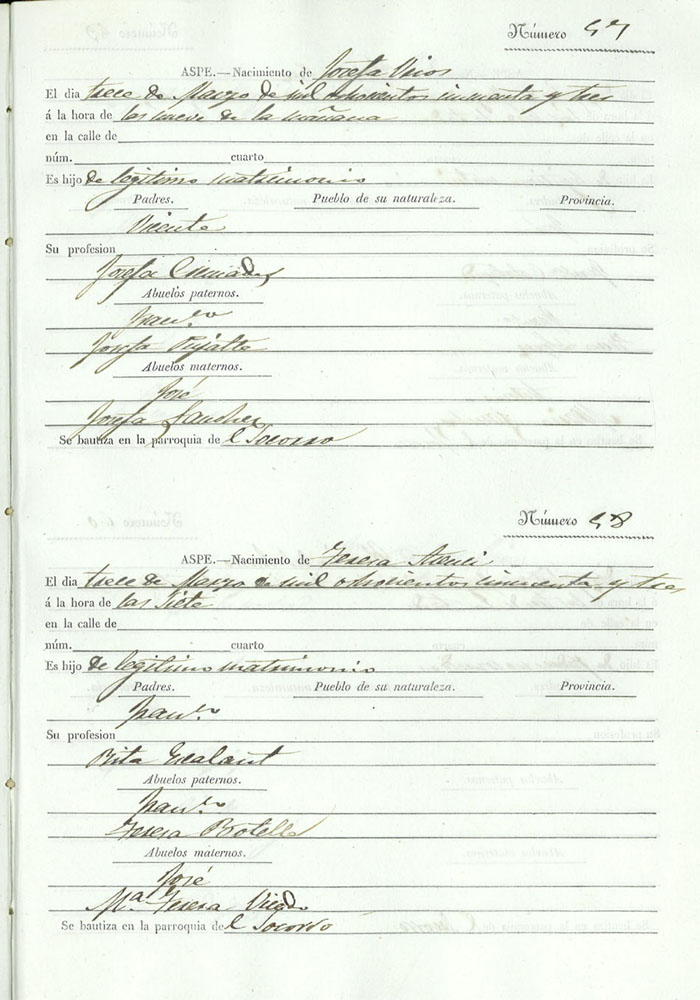 Número 57
ASPE.—Nacimiento de Josefa
El dia trece de Marzo de mil ochocientos cincuenta y tres
á la hora de las nueve de la mañana
en la calle de
núm. cuarto
Es hijo de legitimo matrimonio
Padres. Pueblo de su naturaleza. Provincia.
Vicente
Su profesion
Josefa
Abuelos paternos.
Fran.co
Josefa
Abuelos maternos.
José
Josefa Sanchez
Se bautiza en la parroquia de l Socorro
Número 58
ASPE.—Nacimiento de Teresa
El dia trece de Marzo de mil ochocientos cincuenta y tres
á la hora de las siete
en la calle de
núm. cuarto
Es hijo de legitimo matrimonio
Padres. Pueblo de su naturaleza. Provincia.
Fran.co
Su profesion
Rita
Abuelos paternos.
Fran.co
Teresa Botella
Abuelos maternos.
José
Mª Teresa
Se bautiza en la parroquia de l Socorro